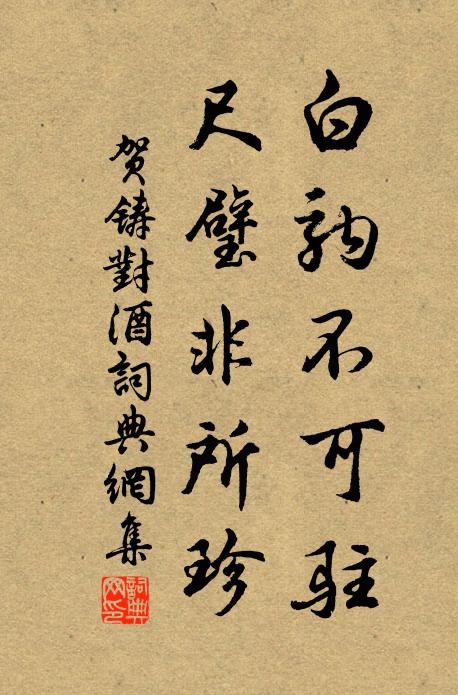 白駒不可駐
尺璧非所珍
贺鑄對酒詞典網集
詞典
网印